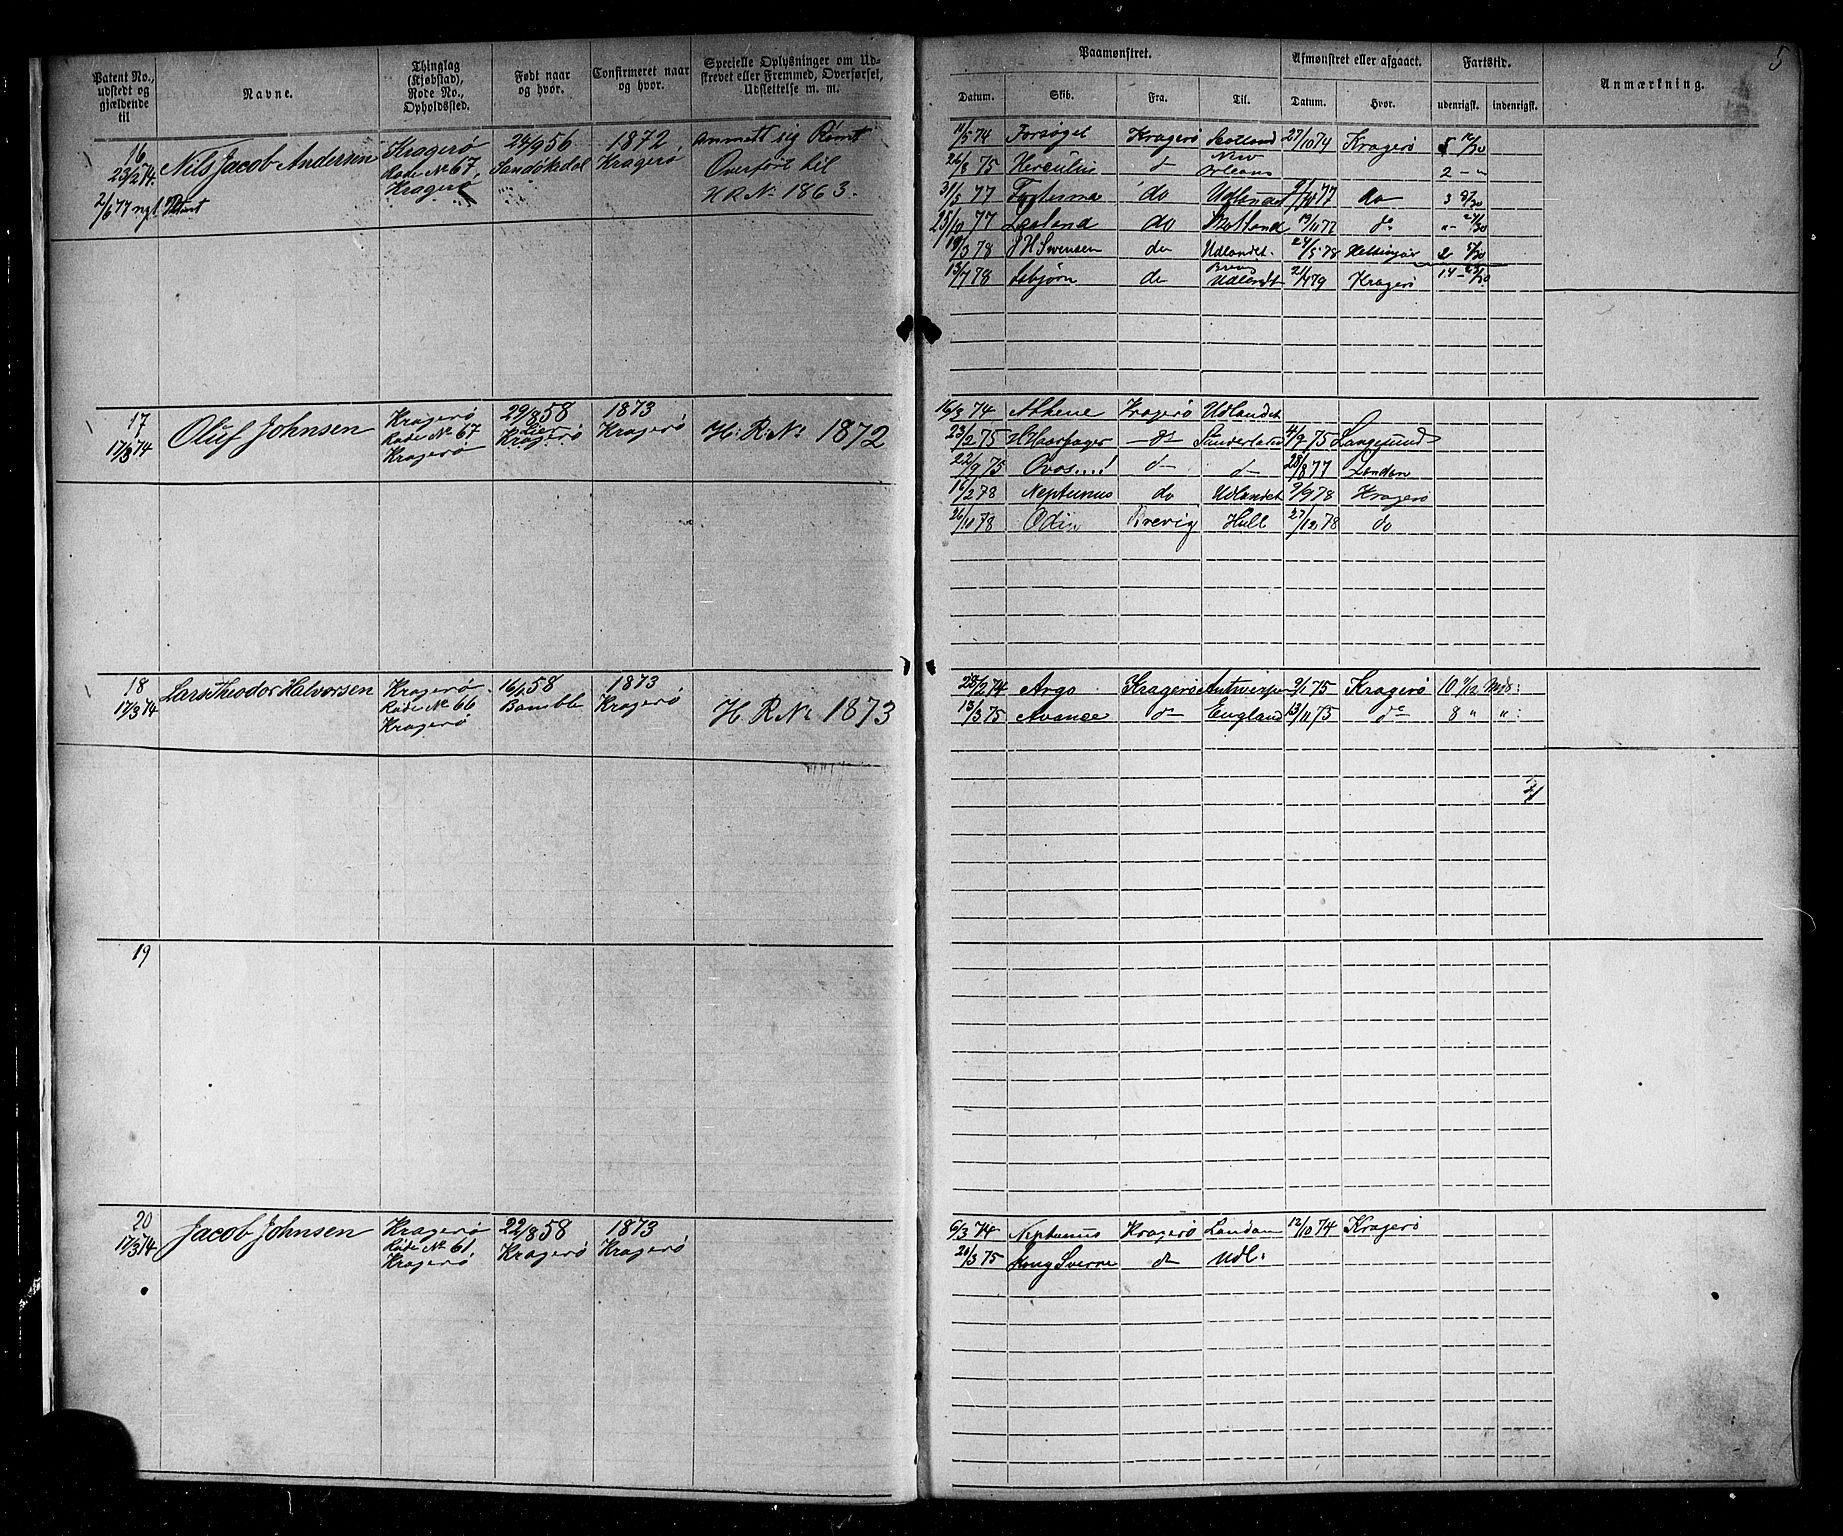 5
Patent No., udstedt og gjældende til
Navne.
Thinglag (Kjøbstad), Rode No., Opholdssted.
Født naar og hvor.
Confirmeret naar og hvor.
Specielle Oplysninger om Udskrevet eller Fremmed, Overførsel, Udslettelse m. m.
Paamønstret.
Afmønstret eller afgaaet.
Fartstid.
Anmærkning.
Datum. Skib. Fra. Til. Datum. Hvor. udenrigsk. indenrigsk.
16
23/2 74.
2/6 77 nyt
Nils Jacob Andersen
Kragerø
Rode No 67,
Kragerø
24/9 56
Sandökedal
1872,
Kragerø
anmett sig Rømt
Overført til
H R No 1863.
11/5 74 Forsøget Kragerø Scotland 27/10 74 Kragerø 5
26/8 75 Herculus do New Orleans 2
31/5 77 Fortuna do Udlandet 77 do 3
25/10 77 do 19/11 77 do
19/3 78 J H Svensen do Udlandet. 24/5 78 Helsingør 2
13/7 78 do Udlandet 21/4 79 Kragerø 14
17
17/3 74
Oluf Johnsen
Kragerø
Rode No 67
Kragerø
29/8 58
Kragerø
1873
Kragerø
H. R. No 1872
16/3 74 Athene Kragerø Udlandet
23/2 75 H Haarfager do Sunderland 4/9 75 Langesund
22/9 75 do do 28/8 77 London
16/2 78 Neptunus do Udlandet 9/9 78 Kragerø
26/10 78 Odin Brevig Hull 27/12 78 do
18
17/3 74
Lars Theodor Halvorsen
Kragerø
Rode No 66
Kragerø
58
Bamble
1873
Kragerø
H R No 1873
23/2 74 Argo Kragerø Antwerpen 9/1 75 Kragerø 10 Mdr:
13/3 75 Avance do England 13/11 75 do 8 " ":
19
20
17/3 74
Jacob Johnsen
Kragerø
Rode No 61,
Kragerø
22/8 58
Kragerø
1873
Kragerø
6/3 74 Neptunus Kragerø London 12/10 74 Kragerø
20/3 75 Kong Sverre do Udl: